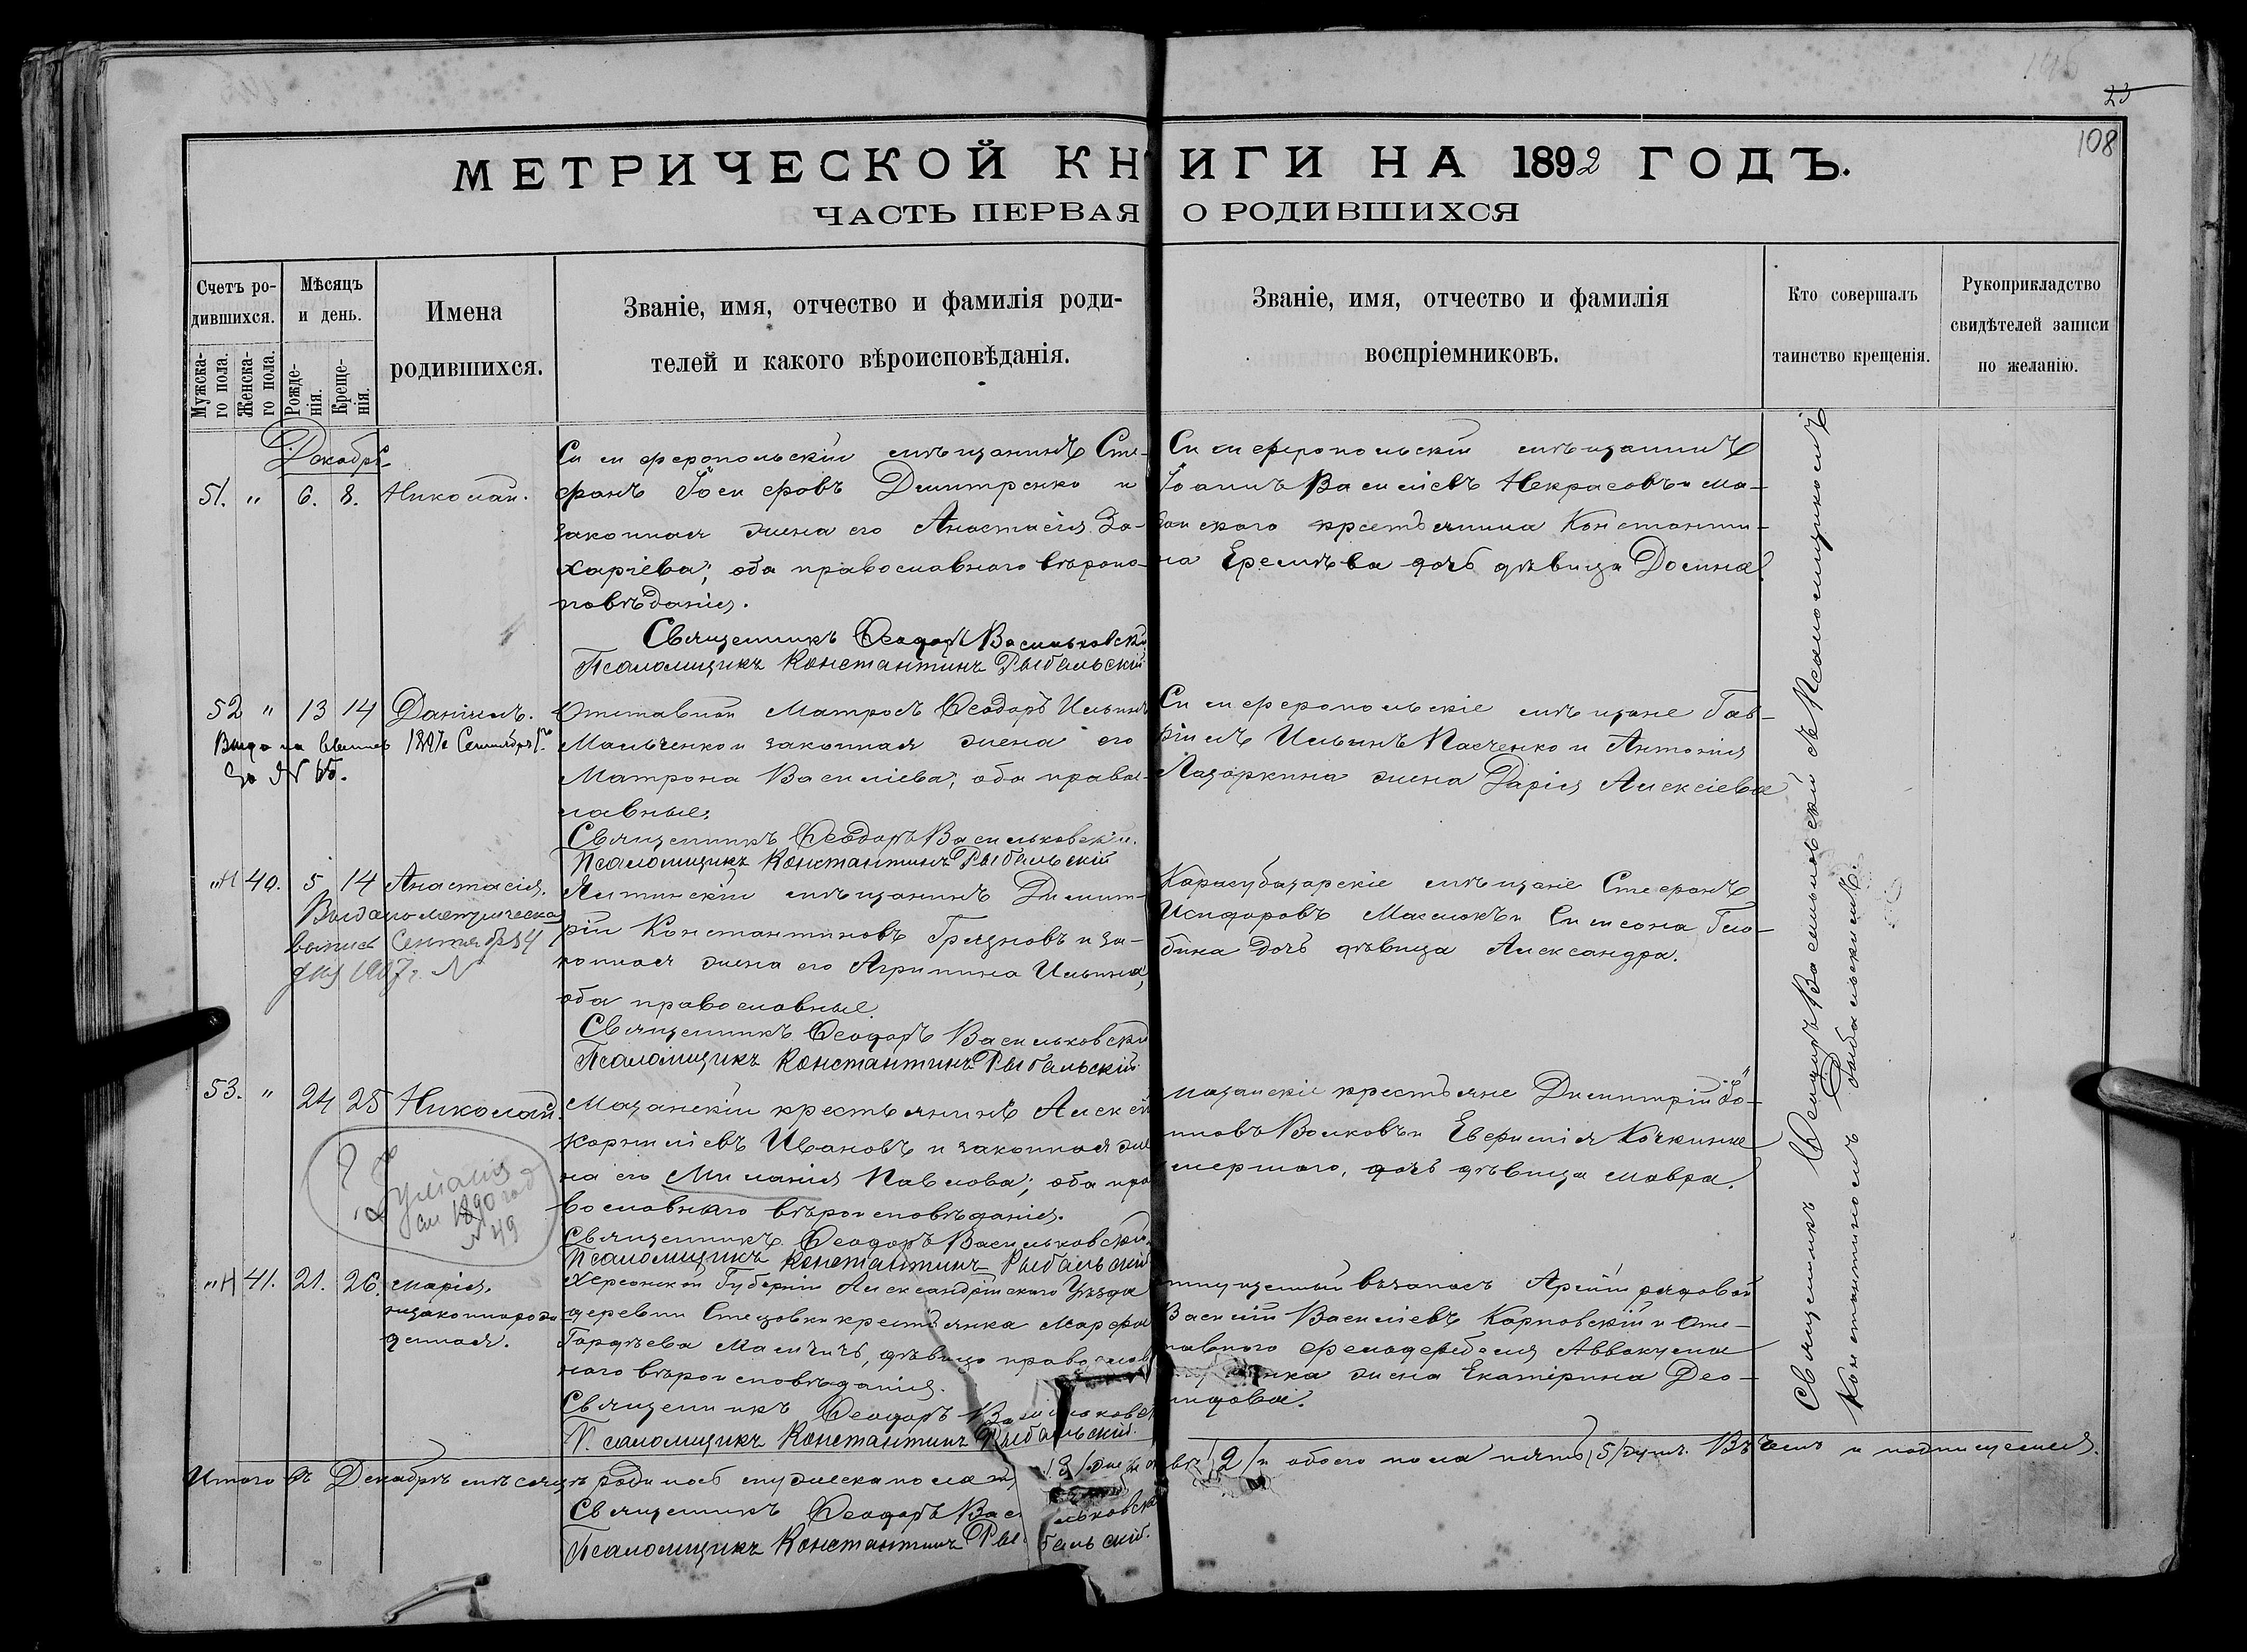 23
108
МЕТРИЧЕСКОЙ КНИГИ НА 1892 ГОДЪ.
ЧАСТЬ ПЕРВАЯ О РОДИВШИХСЯ
Счетъ ро-
дившихся.
Мужска-
го пола.
Женска-
го пола.
Мѣсяцъ
и день.
Рожде-
нія.
Креще-
нія.
Имена
родившихся.
Званіе, имя, отчество и фамилія роди-
телей и какого вѣроисповѣданія.
Званіе, имя, отчество и фамилія
воспріемниковъ.
Кто совершалъ
таинство крещенія.
Рукоприкладство
свидѣтелей записи
по желанію.
Декабрь
51. " 6. 8. Николай.
Симферопольскій мѣщанинъ Сте-
фанъ Іосифовъ Дмитренко и
законная жена его Анастасія За-
харіева; обa православнаго вѣроис-
повѣданія.
Священникъ Ѳеодоръ Васильковскій
Псаломщикъ Константинъ Рыбальскій
Симферопольскій мѣщанинъ
Іоаннъ Василіевъ Некрасовъ и Ма-
занского крестьянина Константи-
на Еремѣева дочь дѣвица Домна.
52 " 13 14 Даніилъ.
Отставной матросъ Ѳеодоръ Ильинъ
Мальченко и законная жена его
Матрона Василіева; оба правос-
лавные.
Священникъ Ѳеодоръ Васильковскій.
Псаломщикъ Константинъ Рыбальскій
Симферопольскіе мѣщане Гав-
ріилъ Ильинъ Пасченко и Антонія
Лазаркина жена Дарія Алексіева
" 40. 5 14 Анастасія.
Выдано метрическа
выпись Сентября 4
дня 1907 г. №
Ялтинскій мѣщанинъ Димит-
рій Константиновъ Грязновъ и за-
конная жена его Агрипина Ильина,
оба православные
Священникъ Ѳеодоръ Васильковскій
Псаломщикъ Константинъ Рыбальскій
Карасубазарскіе мѣщане Стефанъ
Исидоровъ Маслокъ и Симеона Гло-
бина дочь дѣвица Александра.
53. " 24 25 Николай.
? Іуліанія
см 1890 год
№ 49
Мазанскій крестьянинъ Алексѣй
Корниліевъ Ивановъ и законная же
на его Миланія Павлова; оба пра
вославнаго вѣроисповѣданія.
Священникъ Ѳеодоръ Васильковскій.
Псаломщикъ Константинъ Рыбальскій
мазанскіе крестьяне Димитрій Іо-
нновъ Волковъ и Евфимія Кочкина
умершаго, дочь дѣвица Мавра.
" 41. 21. 26. Марія.
незаконнорож
денная.
Херсонской Губерніи Александрійскаго Уѣзда
деревни Стецовки крестьянка Марфа
Гордѣева Маличъ, дѣвица православ
наго вѣроисповѣданія.
Священникъ Ѳеодоръ Васильковск
Псаломщикъ Константинъ Рыбальскій.
тпущенный въ запасъ Арміи рядовой
Василій Василіевъ Карповскій и Отс-
тавного фельдфебеля Аввакума
жена Екатерина Део-
мидова.
Итого въ Декабрѣ мѣсяцѣ родилось мужеска пола 3 2/ и обоего пола пять /5/ душъ. Въ чемъ и подписуемся.
Священникъ Ѳеодоръ Васильковскі
Псаломщикъ Константинъ Рыбальскій.
Священникъ Ѳеодоръ Васильковскій съ Псаломщикомъ
Константиномъ Рыбальскимъ.